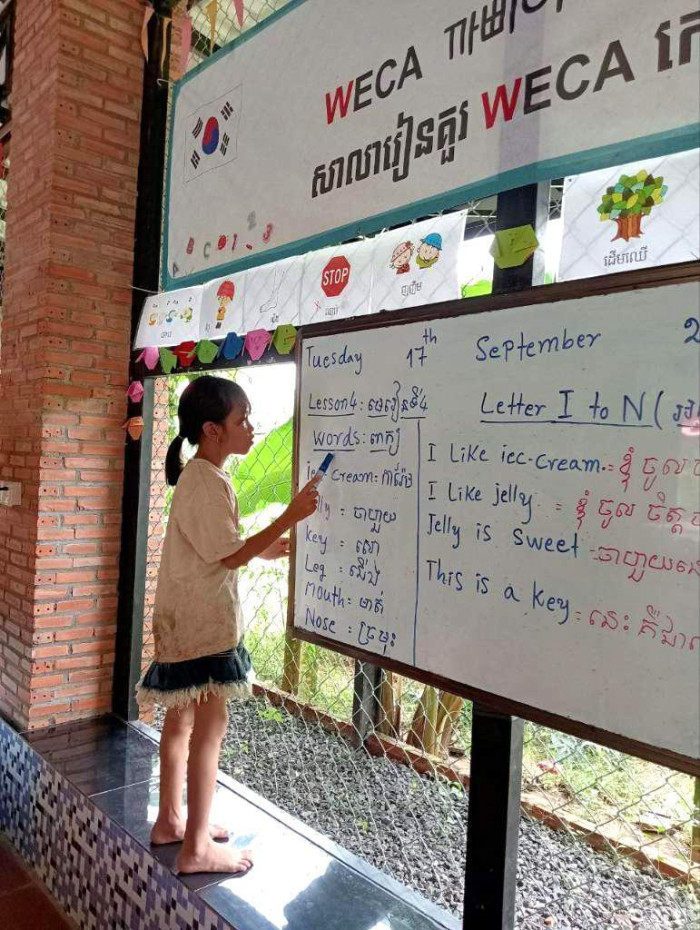 WECA
សាលារៀនគួរ WECA
A B C D 1 2 3
STOP
ញញឹម
ដើមឈើ
Tuesday 17th September 2
Lesson4: មេរៀនទី4
Letter I to N (
Words: ពាក្យ
Cream = ការ៉ែម
Jelly = ចាហួយ
Key = សោ
Leg = ជើង
Mouth = មាត់
Nose = ច្រមុះ
I Like icc-cream. = ខ្ញុំ ចូល
I Like jelly = ខ្ញុំ ចូល ចិត្ត
Jelly is sweet - ចាហួយ
This is a key = នេះ គឺជា